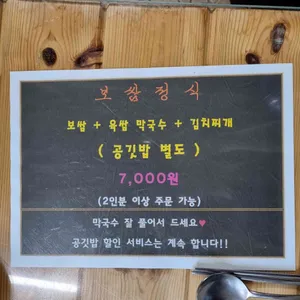 보쌈정식
보쌈 + 육쌈 막국수 + 김치찌개
( 공깃밥 별도 )
7,000원
(2인분 이상 주문 가능)
막국수 잘 풀어서 드세요♥
공깃밥 할인 서비스는 계속 합니다!!